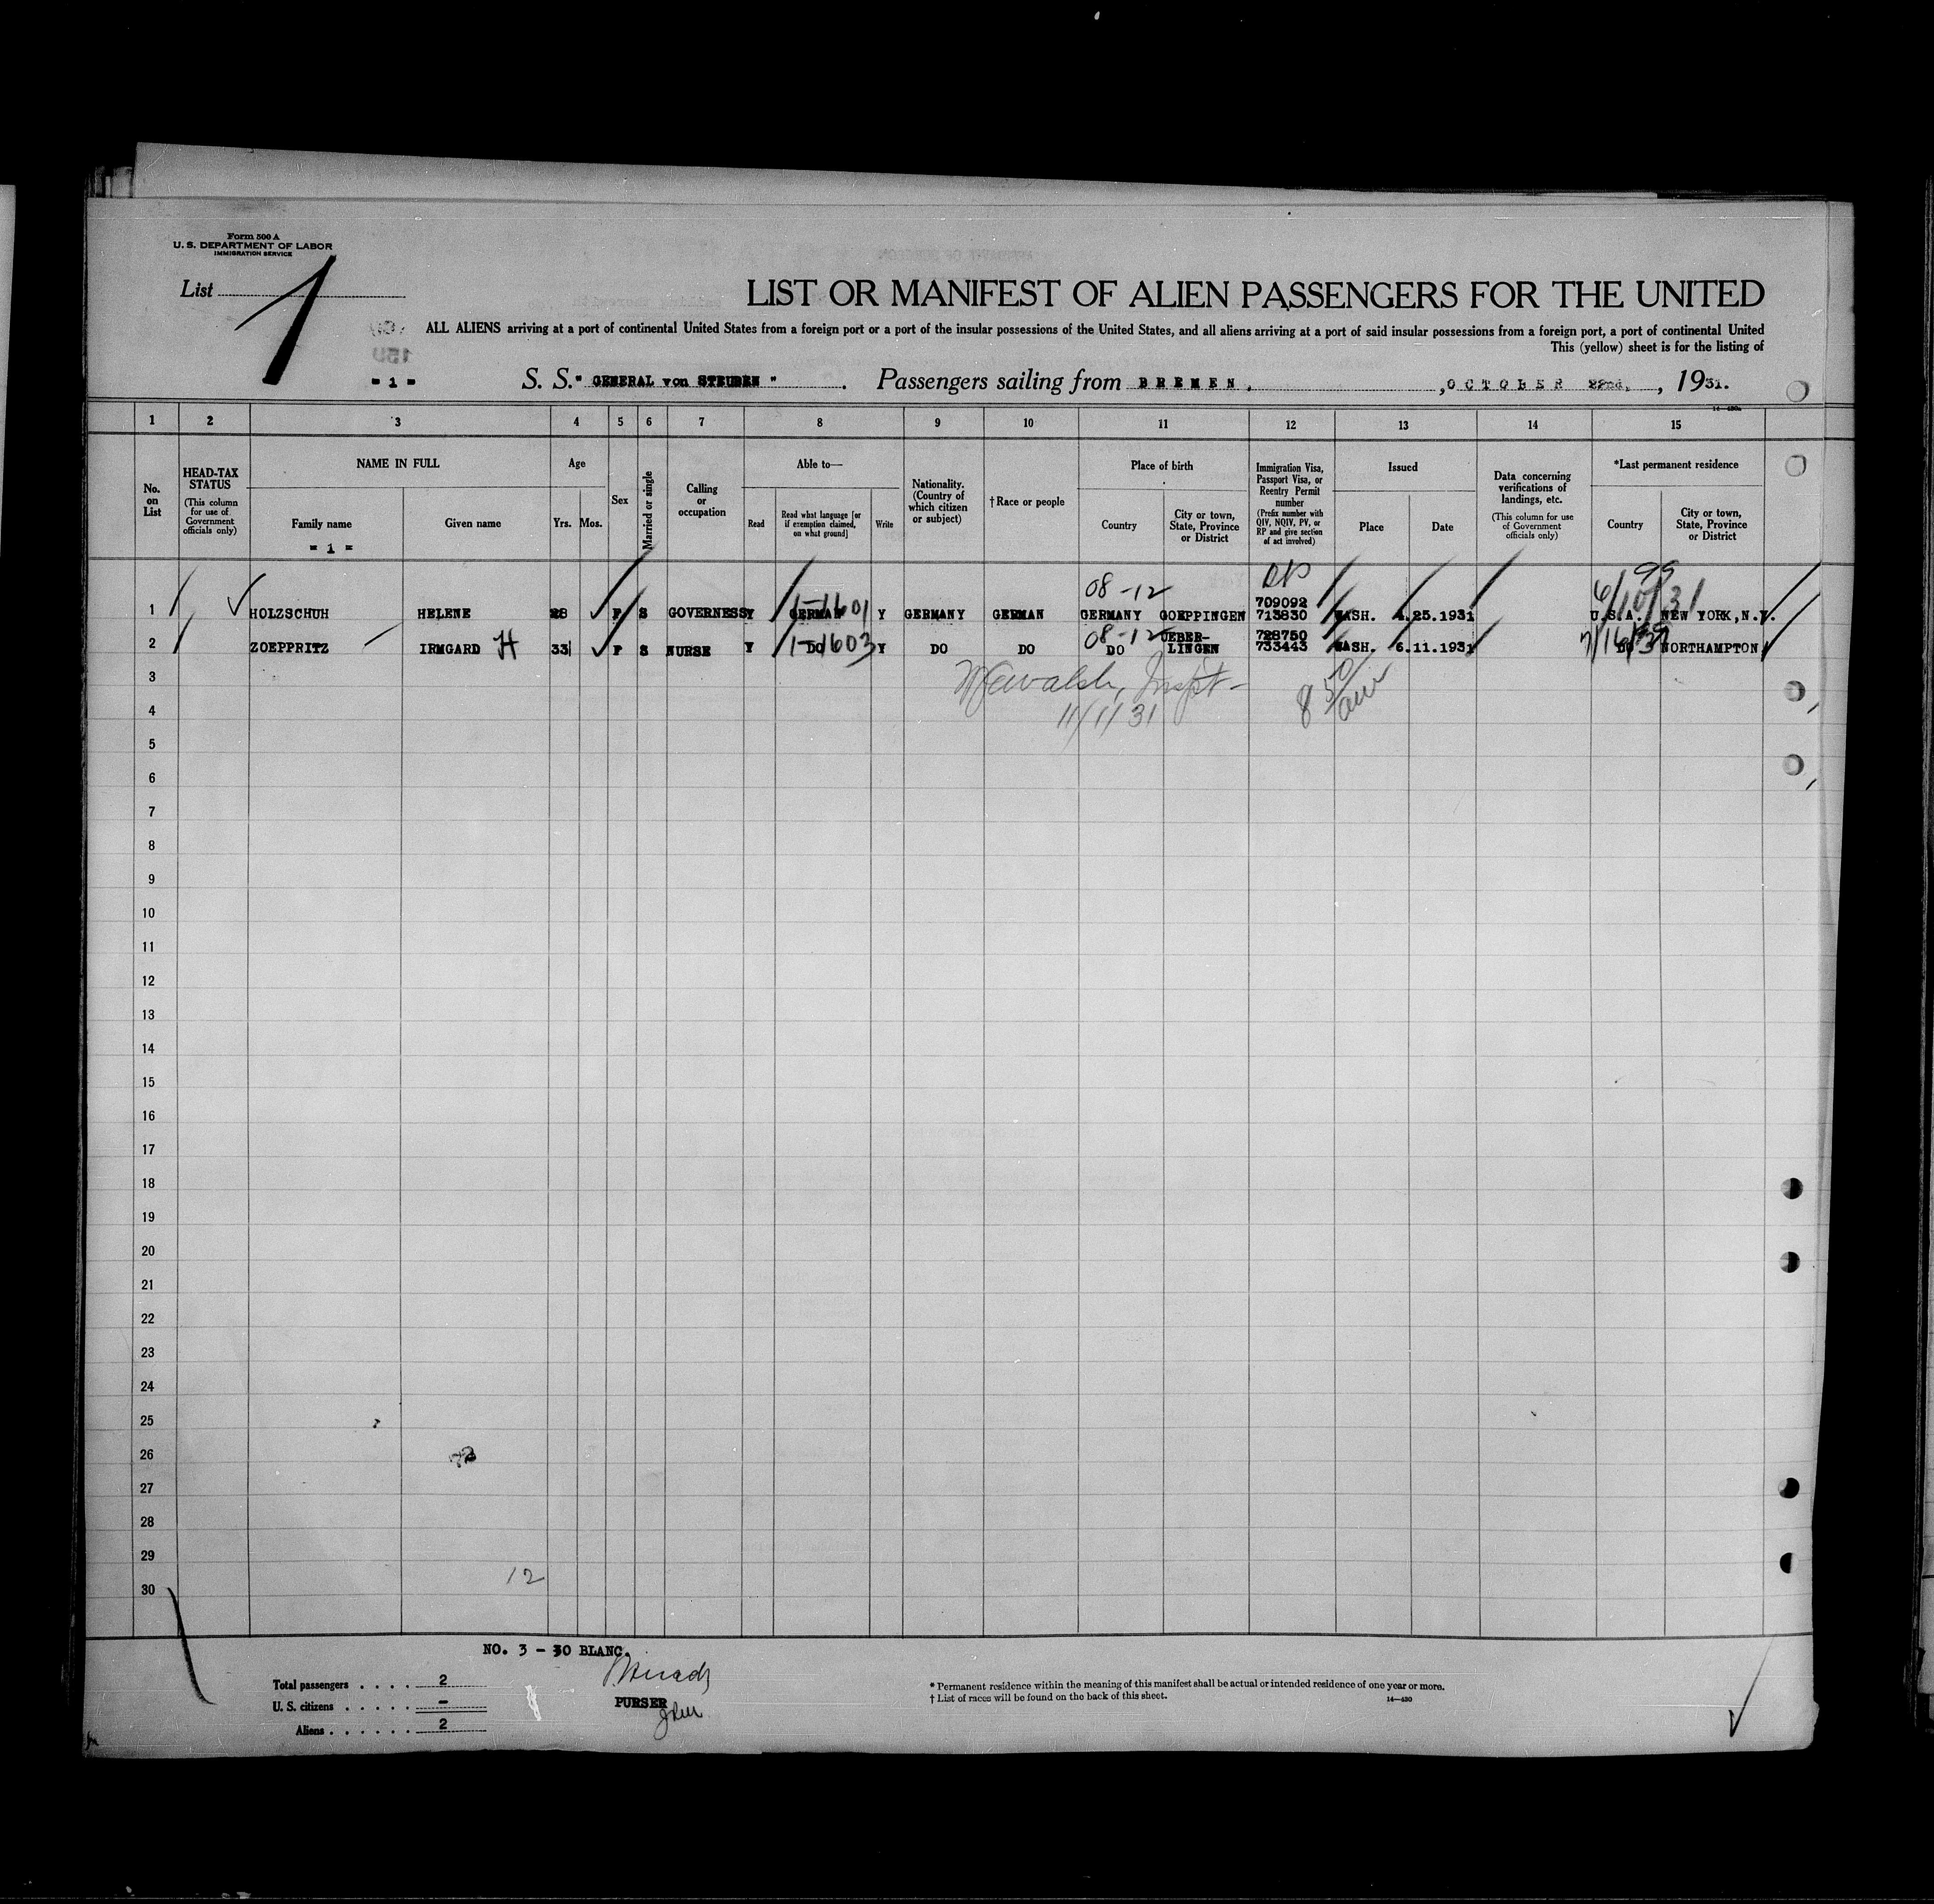 Form 500 A
U. S. DEPARTMENT OF LABOR
IMMIGRATION SERVICE
List 1
LIST OR MANIFEST OF ALIEN PASSENGERS FOR THE UNITED
ALL ALIENS arriving at a port of continental United States from a foreign port or a port of the insular possessions of the United States, and all aliens arriving at a port of said insular possessions from a foreign port, a port of continental United
This (yellow) sheet is for the listing of
- 1 - S. S. " GENERAL von STEUBEN " . Passengers sailing from BREMEN. , OCTOBER 22nd, , 1931.
1 2 3 4 5 6 7 8 9 10 11 12 13 14 15
No. on List
HEAD-TAX STATUS
(This column for use of Government officials only)
NAME IN FULL
Family name
- 1 -
Given name
Age
Yrs. Mos.
Sex
Married or single
Calling or occupation
Able to—
Read
Read what language [or if exemption claimed, on what ground]
Write
Nationality. (Country of which citizen or subject)
† Race or people
Place of birth
Country
City or town, State, Province or District
Immigration Visa, Passport Visa, or Reentry Permit number
(Prefix number with QIV, NQIV, PV, or RP and give section of act involved)
Issued
Place
Date
Data concerning verifications of landings, etc.
(This column for use of Government officials only)
*Last permanent residence
Country
City or town, State, Province or District
08-12
709092
1 HOLZSCHUH HELENE 28 F S GOVERNESS Y GERMAN 1-1601 Y GERMANY GERMAN GERMANY GOEPPINGEN 713830 WASH. 4.25.1931 U.S.A. NEW YORK, N.Y.
6/10/31
08-12 UEBER- 728750
2 ZOEPPRITZ IRMGARD H 33 F S NURSE Y DO 1-1603 Y DO DO DO LINGEN 733443 WASH. 6.11.1931 DO NORTHAMPTON
3
11/1/31
4
5
6
7
8
9
10
11
12
13
14
15
16
17
18
19
20
21
22
23
24
25
26
27
28
29
12
30
NO. 3 - 30 BLANC.
Total passengers . . . . 2
U. S. citizens . . . . . -
Aliens . . . . . . 2
PURSER
* Permanent residence within the meaning of this manifest shall be actual or intended residence of one year or more.
† List of races will be found on the back of this sheet.
14—430